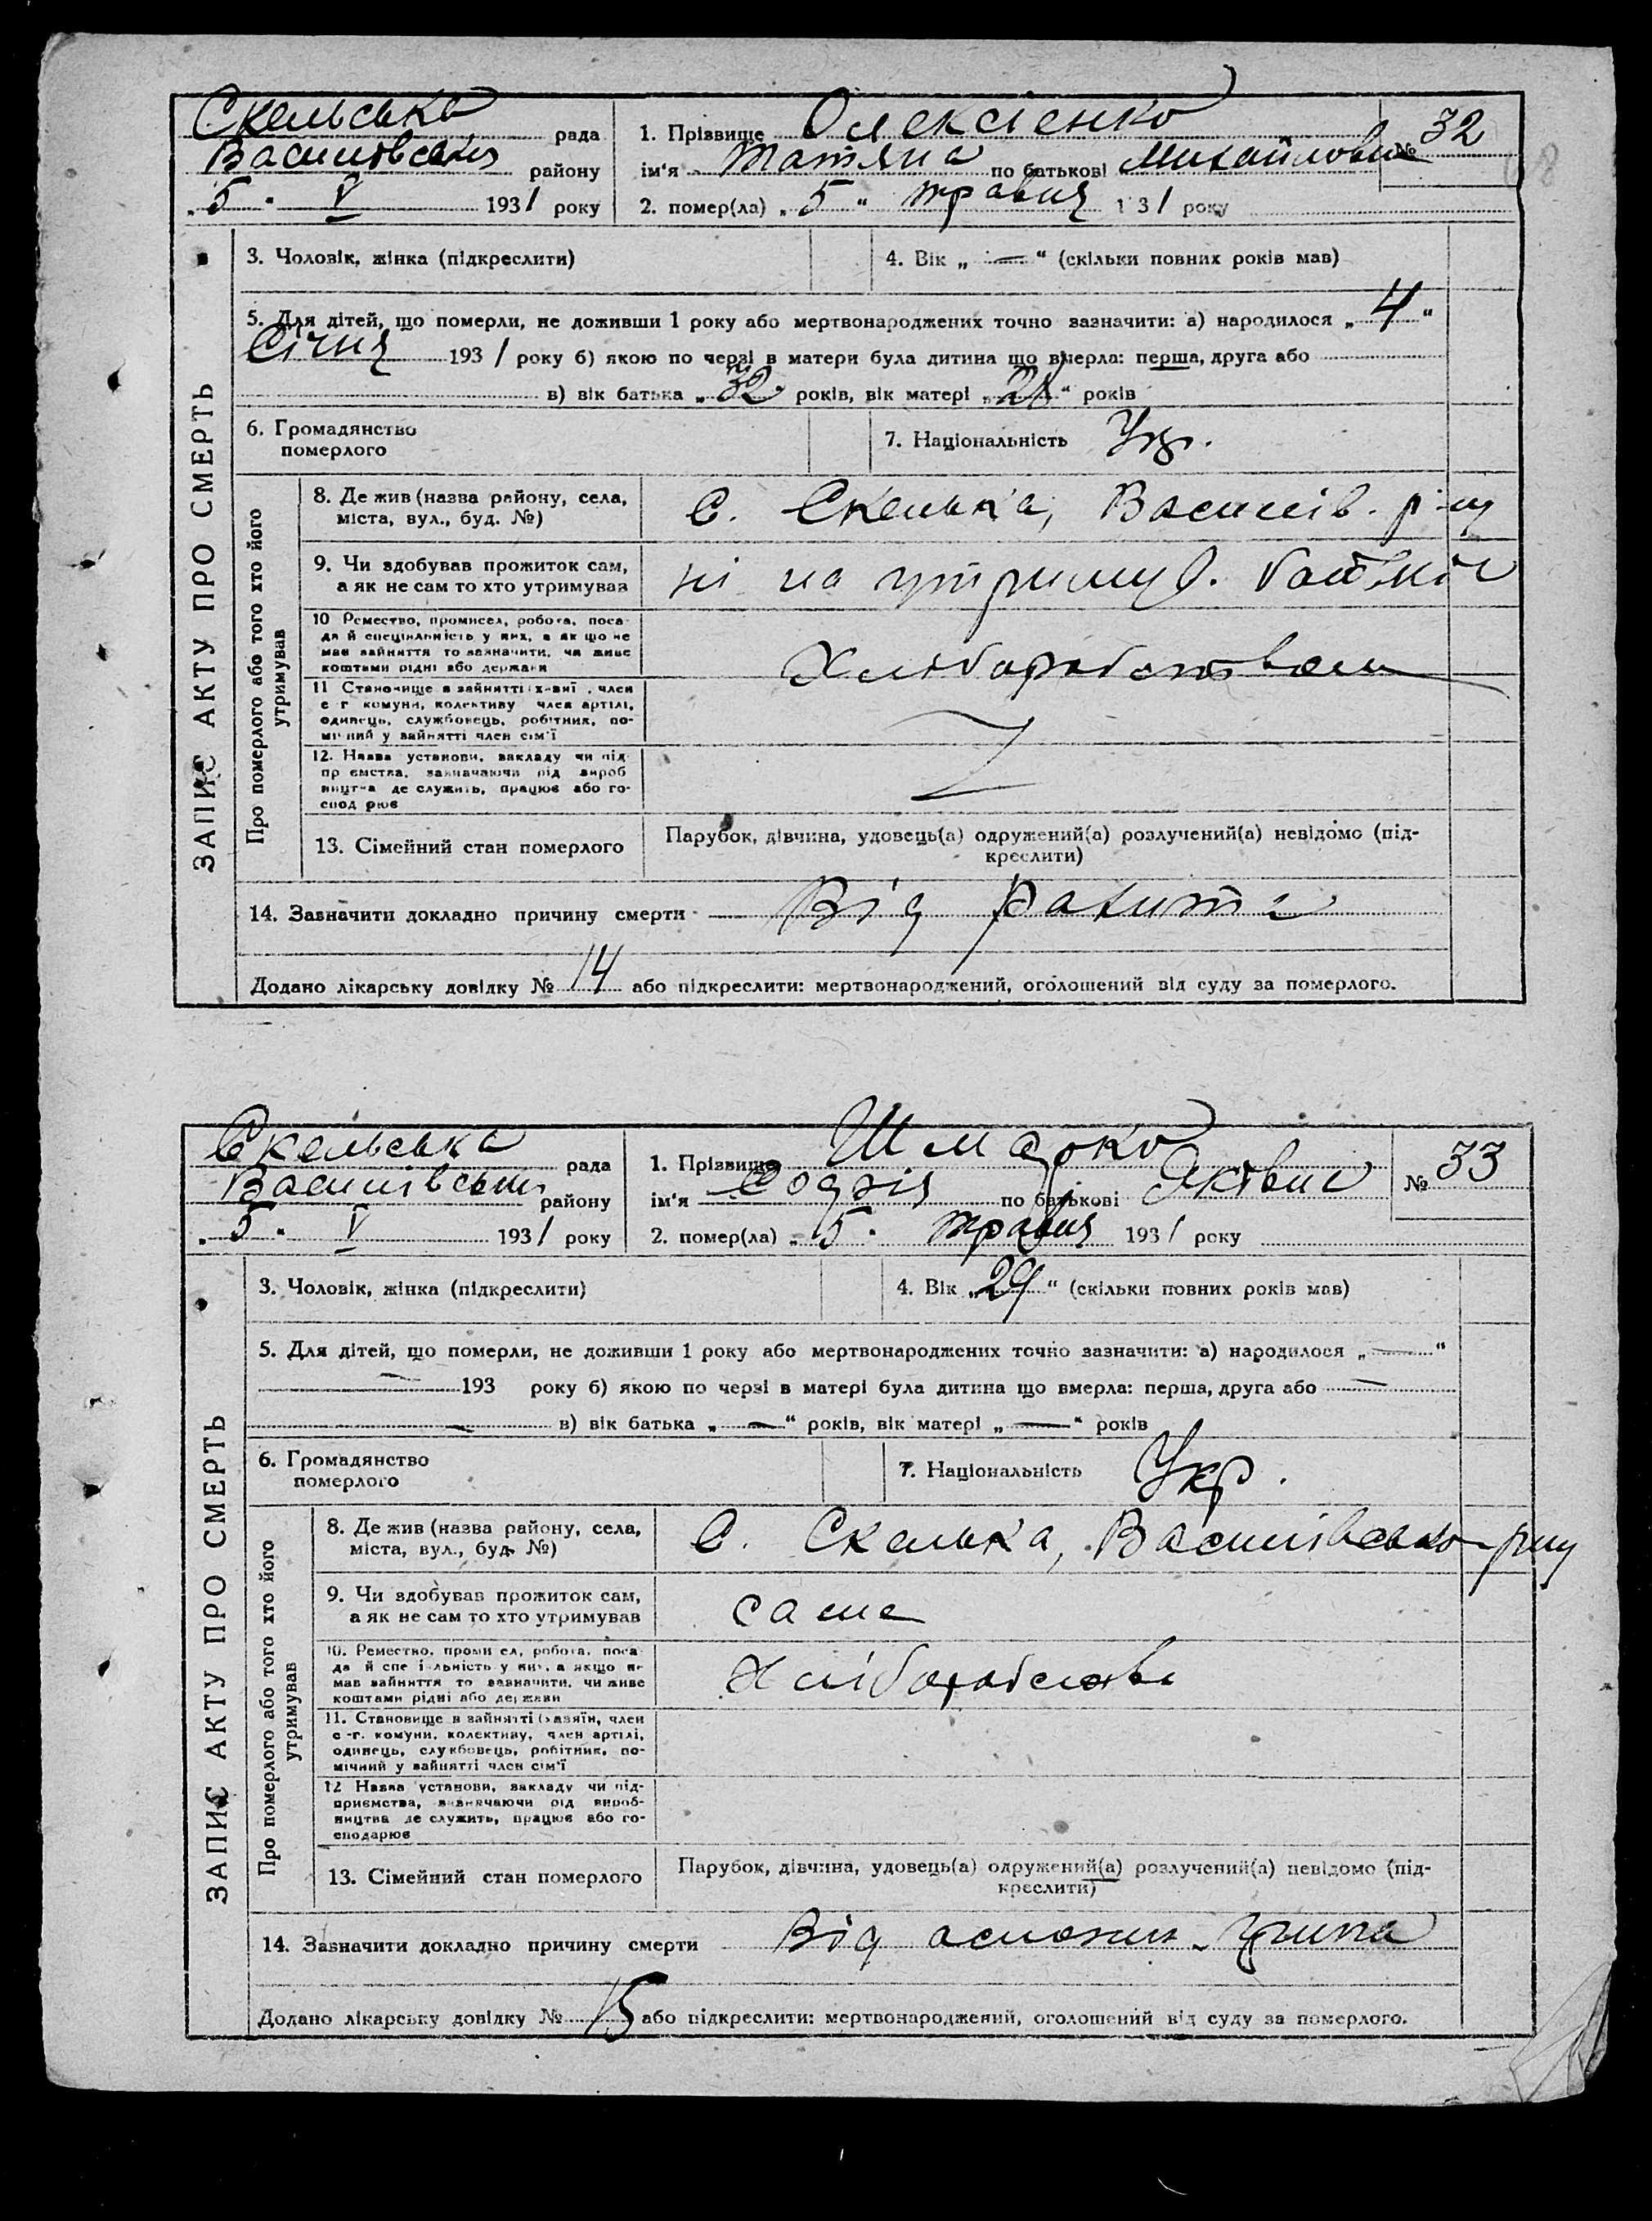 Скельська рада
Василівськ району
„ 5 " V 1931 року
1. Прізвище Олексієнко
ім'я Татяна по батькові Михайловна
№ 32
2. помер(ла) „ 5 " травня 1 31 року
ЗАПИС АКТУ ПРО СМЕРТЬ
3. Чоловік, жінка (підкреслити)
4. Вік „ — " (скільки повних років мав)
5. Для дітей, що померли, не доживши 1 року або мертвонароджених точно зазначити: а) народилося „ 4 "
Січня 1931 року б) якою по черзі в матери була дитина що вмерла: перша, друга або
в) вік батька „ 32 років, вік матері „ " років
6. Громадянство
померлого
7. Національність Укр.
Про померлого або того хто його
утримував
8. Де жив (назва району, села,
міста, вул., буд. №)
С. Скелька, Василів. р-ну
9. Чи здобував прожиток сам,
а як не сам то хто утримував
ні на утримув. батьків
10 Ремество, промисел, робота, поса-
да й спеціяльність у них, а як що не
має зайняття то зазначити, чи живе
коштами рідні або держави
Хліборобством
11 Становище в зайнятті х-вні , член
с г комуни, колективу член артілі,
одинець, службовець, робітник, по-
мічний у зайнятті член сім'ї
12. Назва установи, закладу чи під-
пр емства, зазначаючи рід вироб
ництва де служить, працює або го-
спод рює
13. Сімейний стан померлого
Парубок, дівчина, удовець(а) одружений(а) розлучений(а) невідомо (під-
креслити)
14. Зазначити докладно причину смерти Від рахита
Додано лікарську довідку № 14 або підкреслити: мертвонароджений, оголошений від суду за померлого.
Скельська рада
Василівськ району
„ 5 " V 1931 року
1. Прізвище Шмадко
ім'я Софія по батькові Яківна
№ 33
2. помер(ла) „ 5 " травня 1931 року
ЗАПИС АКТУ ПРО СМЕРТЬ
3. Чоловік, жінка (підкреслити)
4. Вік „ 29 " (скільки повних років мав)
5. Для дітей, що померли, не доживши 1 року або мертвонароджених точно зазначити: а) народилося „ — "
— 193 року б) якою по черзі в матері була дитина що вмерла: перша, друга або —
— в) вік батька „ — " років, вік матері „ — " років
6. Громадянство
померлого
7. Національність Укр.
Про померлого або того хто його
утримував
8. Де жив (назва району, села,
міста, вул., буд. №)
С. Скелька, Василівсько р-ну
9. Чи здобував прожиток сам,
а як не сам то хто утримував
сама
10. Ремество, проми ел, робота, поса-
да й спе і льність у них, а якщо не
мав зайняття то зазначити, чи живе
коштами рідні або держави
Хліборобство
11. Становище в зайнятті (хазяїн, член
с -г. комуни, колективу, член артілі,
одинець, службовець, робітник, по-
мічний у зайнятті член сім'ї
12 Назва установи, закладу чи під-
приємства, зазначаючи рід вироб-
ництва де служить, працює або го-
сподарює
13. Сімейний стан померлого
Парубок, дівчина, удовець(а) одружений(а) розлучений(а) невідомо (під-
креслити)
14. Зазначити докладно причину смерти Від осложн. гриппа
Додано лікарську довідку № 15 або підкреслити: мертвонароджений, оголошений від суду за померлого.